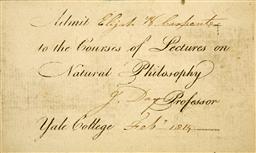 Admit Elijah H Carpenter
to the Courses of Lectures on
Natural Philosophy
J. Day Professor
Yale College Feb.y 1814